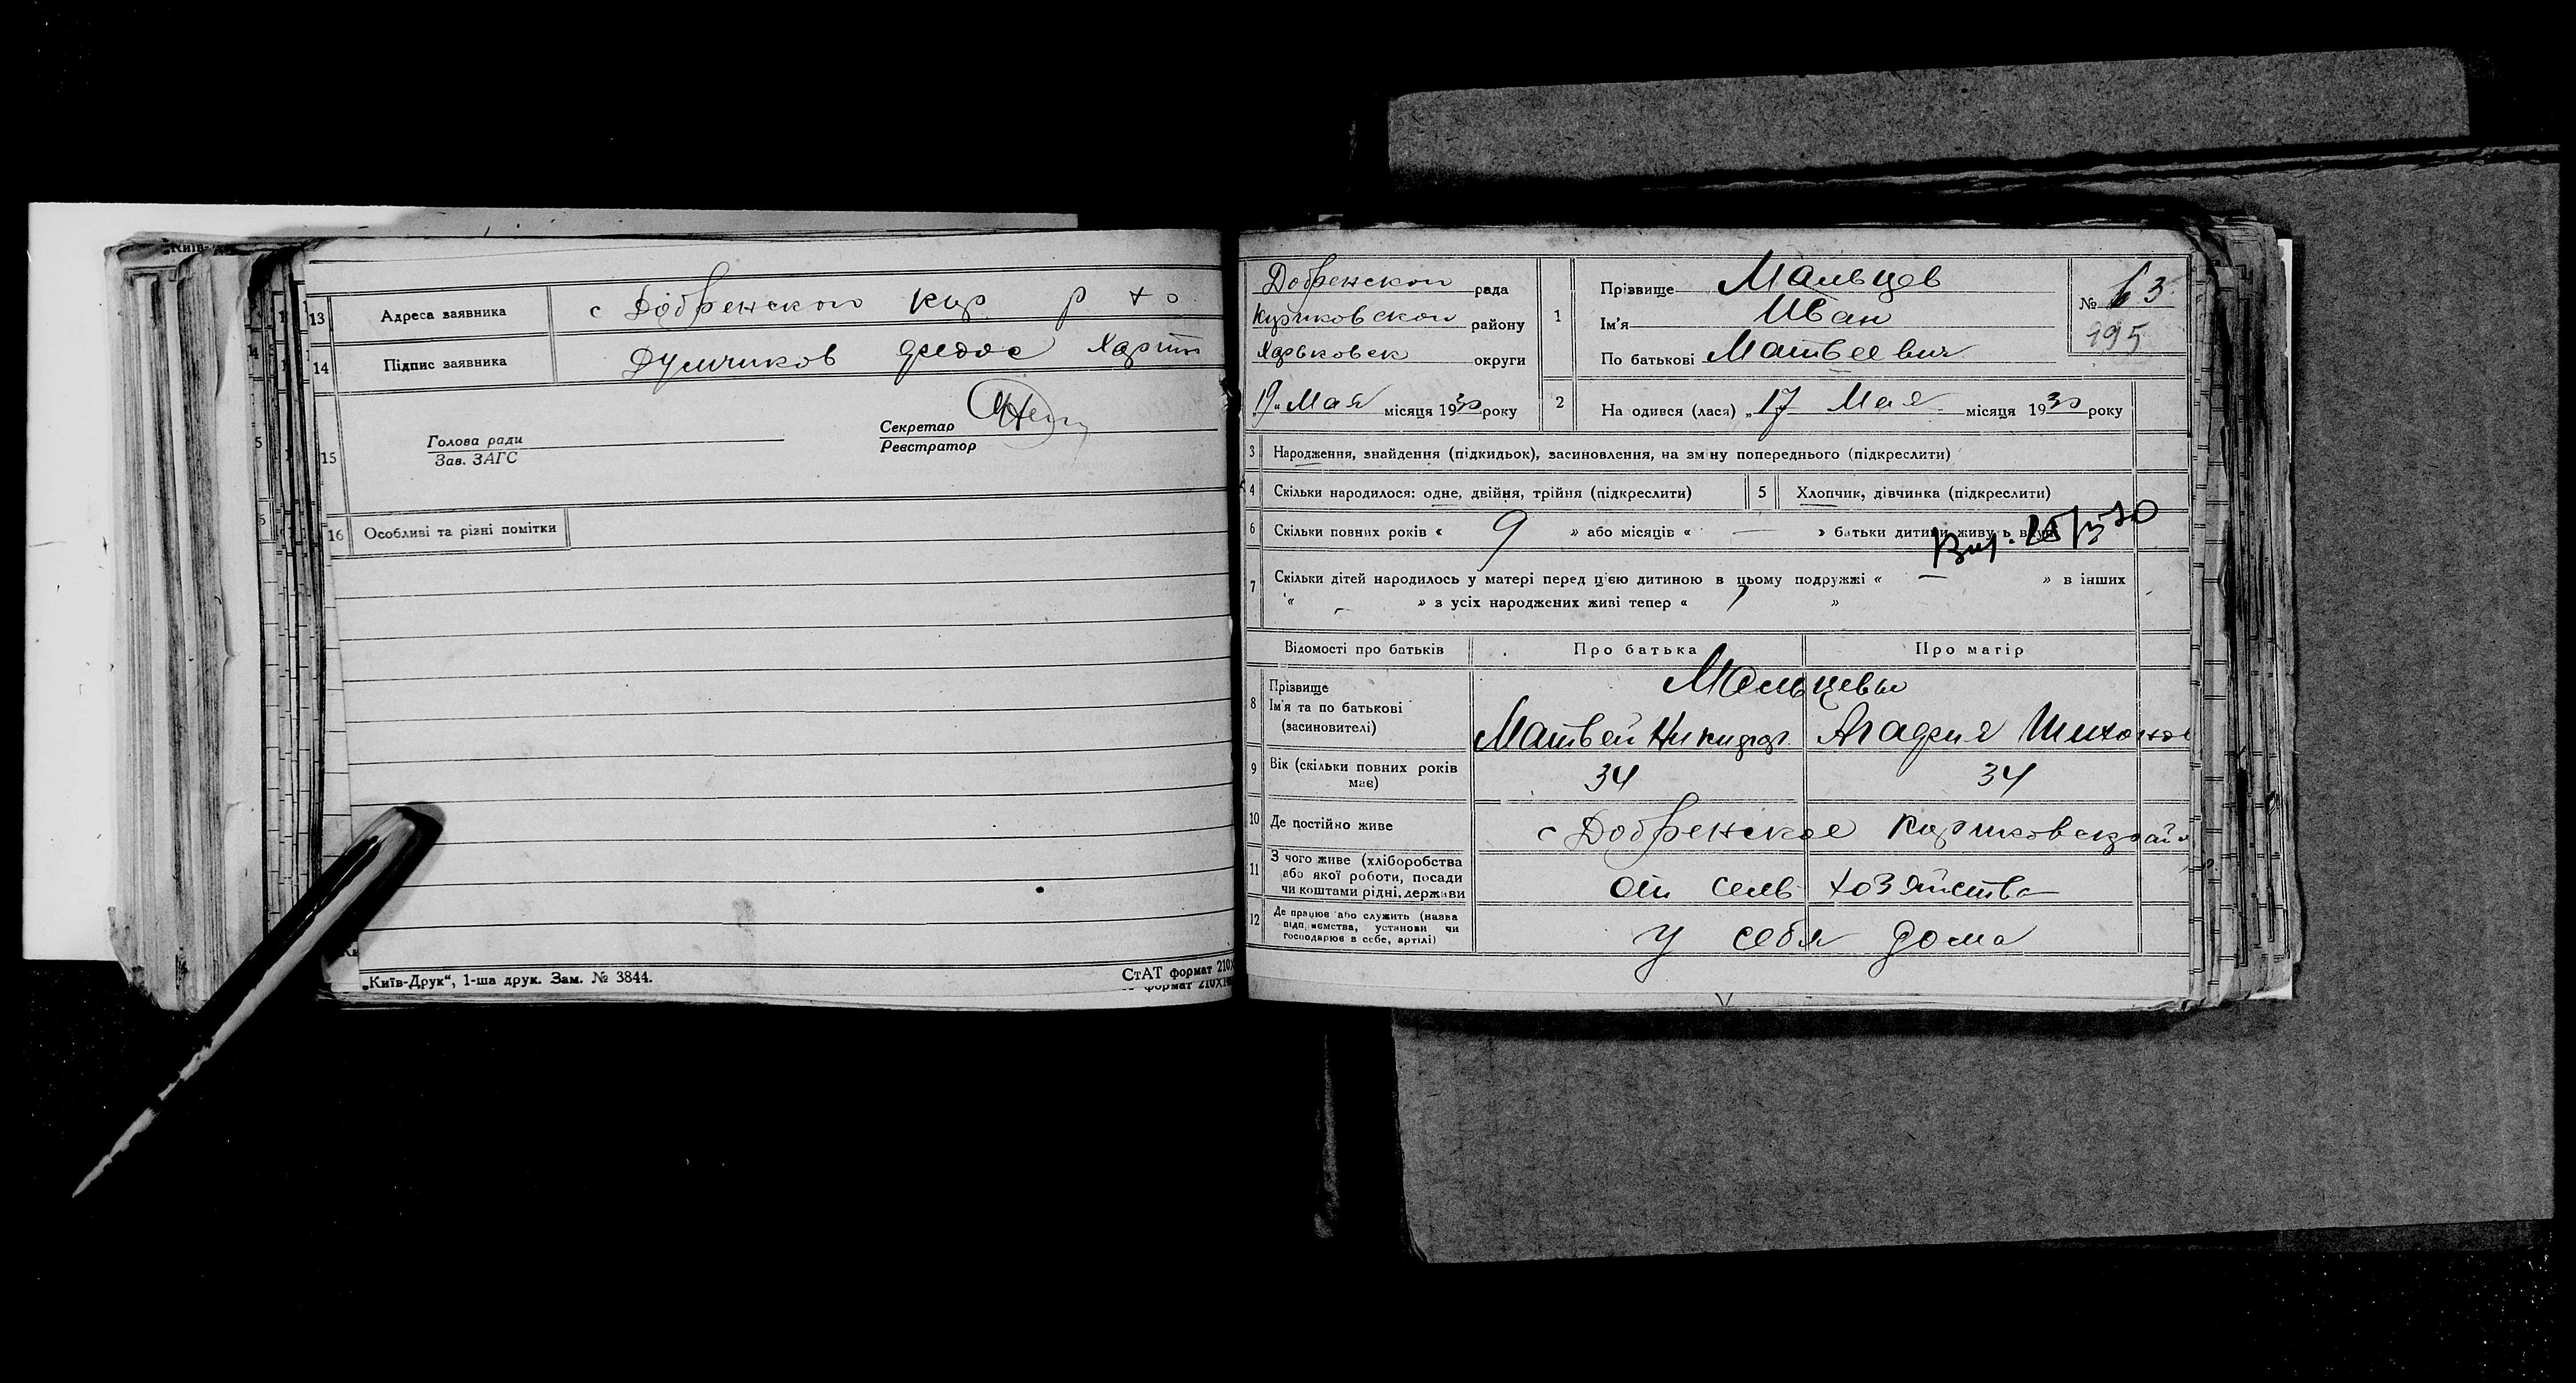 13 Адреса заявника с Добренской Кур р х о
14 Підпис заявника Думчиков Федос Харит
15 Голова ради
Зав. ЗАГС
Секретар
Реєстратор
16 Особливі та різні помітки
„Київ-Друк“, 1-ша друк. Зам. № 3844.
СтАТ формат 210X
Добренской рада
Куриковской району
Харьковск округи
„19„ Мая місяця 1930 року
1 Прізвище Мальцев
Ім'я Иван
По батькові Матвеевич
№ 63
995
2 На одився (лася) „17 Мая місяця 1930 року
3 Народження, знайдення (підкидьок), засиновлення, на зміну попереднього (підкреслити)
4 Скільки народилося: одне, двійня, трійня (підкреслити) 5 Хлопчик, дівчинка (підкреслити)
6 Скільки повних років « 9 » або місяців « — » батьки дитини живуть вкупі
7 Скільки дітей народилось у матері перед цією дитиною в цьому подружжі « — » в інших
« – » з усіх народжених живі тепер « 7 »
Відомості про батьків Про батька Про матір
8 Прізвище
Ім'я та по батькові
(засиновителі)
Мальцевы
Матвей Никифор. Агафия Тихонов
9 Вік (скільки повних років має) 34 34
10 Де постійно живе с Добренское Куриковск район
11 З чого живе (хліборобства
або якої роботи, посади
чи коштами рідні, держави
от сель хозяйства
12 Де працює або служить (назва
підприємства, установи чи
господарює в себе, артілі)
у себя дома